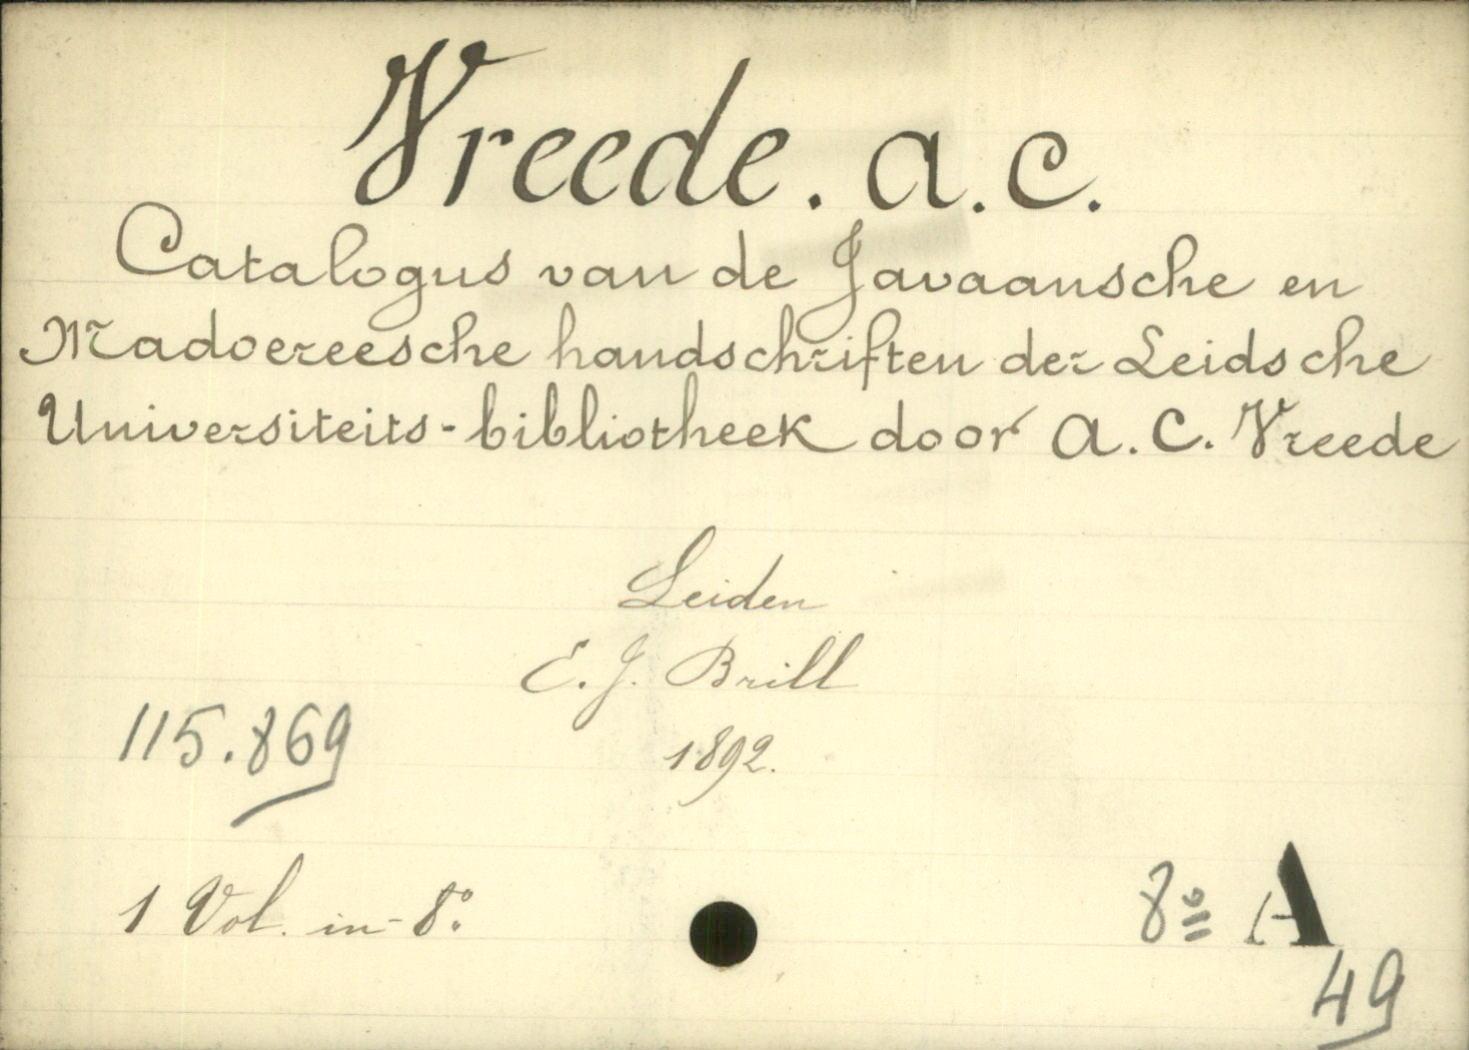 Vreede. A.C.
Catalogus van de Javaansche en
Madoereesche handschriften der Leidsche
Universiteits-bibliotheek door A.C. Vreede
Leiden
E.J. Brill
115.869
1892.
1 Vol. in-8°.
8° A
49